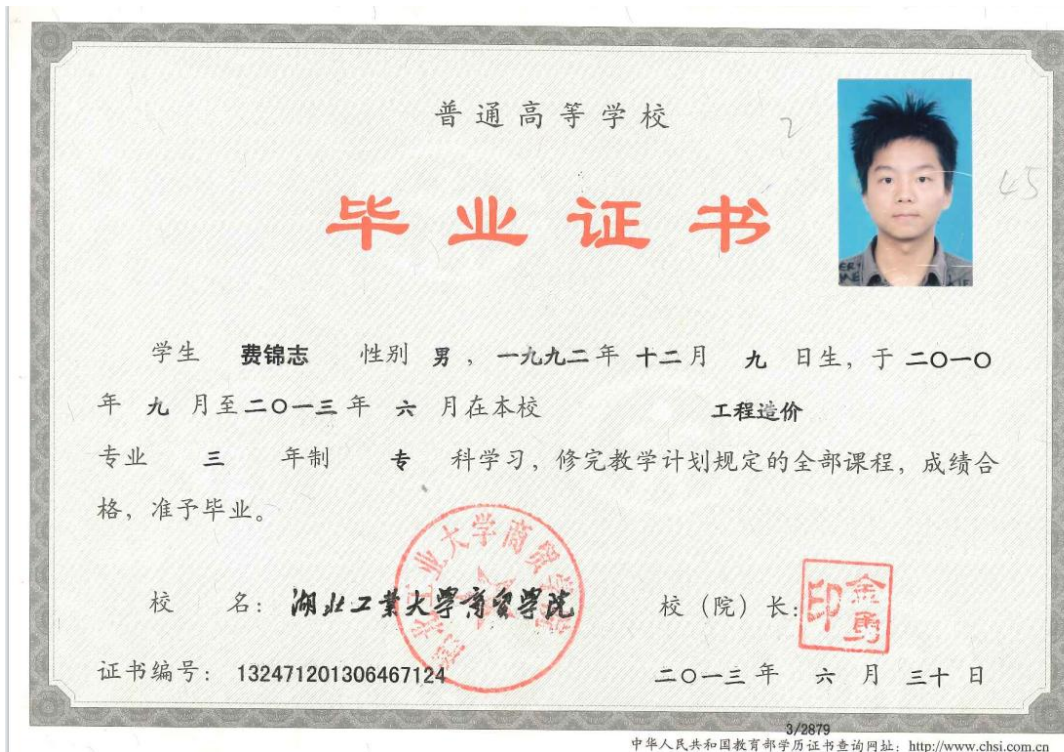 普通高等学校
2
毕业证书
45
学生 费锦志 性别 男，一九九二年 十二月 九 日生，于 二〇一〇
年 九 月至二〇一三年 六 月在本校 工程造价
专业 三 年制 专 科学习，修完教学计划规定的全部课程，成绩合
格，准予毕业。
湖北工业大学商贸学院
校 名：湖北工業大學商貿學院 校（院）长：
金勇印
证书编号：132471201306467124 二〇一三年 六 月 三十 日
3/2879
中华人民共和国教育部学历证书查询网址：http://www.chsi.com.cn